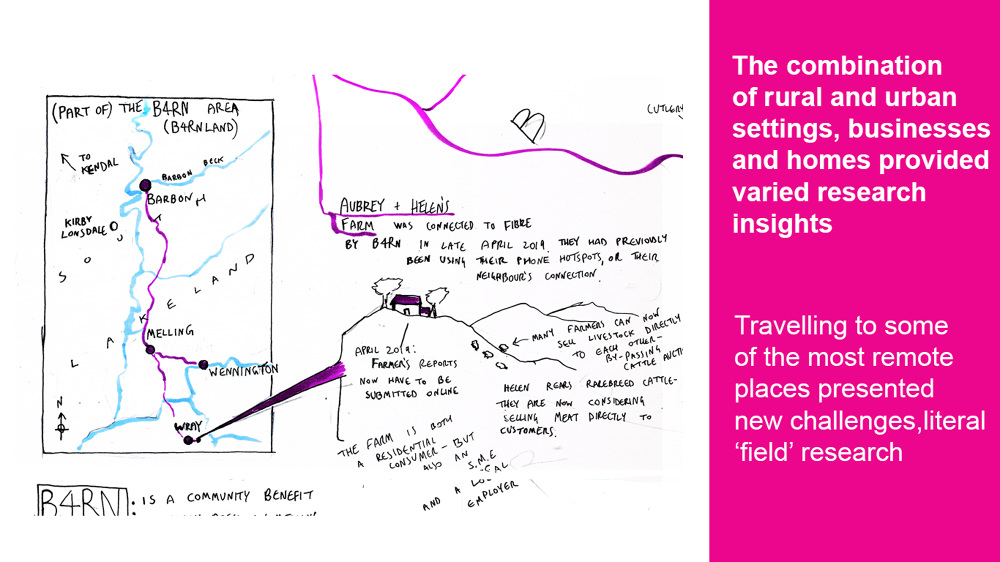 (PART OF) THE B4RN AREA
(B4RNLAND)
TO
KENDAL
BARBON BECK
BARBON
KIRBY
LONSDALE
SOUTH LAKELAND
MELLING
WENNINGTON
N
WRAY
B4RN: IS A COMMUNITY BENEFIT
B
CUTLERY
AUBREY + HELEN'S
FARM WAS CONNECTED TO FIBRE
BY B4RN IN LATE APRIL 2019. THEY HAD PREVIOUSLY
BEEN USING THEIR PHONE HOTSPOTS, OR THEIR
NEIGHBOUR'S CONNECTION.
MANY FARMERS CAN NOW
SELL LIVESTOCK DIRECTLY
TO EACH OTHER-
BY-PASSING
CATTLE AUCTI
APRIL 2019:
FARMER'S REPORTS
NOW HAVE TO BE
SUBMITTED ONLINE
HELEN REARS RAREBREED CATTLE-
THEY ARE NOW CONSIDERING
SELLING MEAT DIRECTLY TO
CUSTOMERS.
THE FARM IS BOTH
A RESIDENTIAL
CONSUMER - BUT
ALSO AN
S.M.E
AND A LOCAL
EMPLOYER
The combination
of rural and urban
settings, businesses
and homes provided
varied research
insights
Travelling to some
of the most remote
places presented
new challenges,literal
‘field’ research